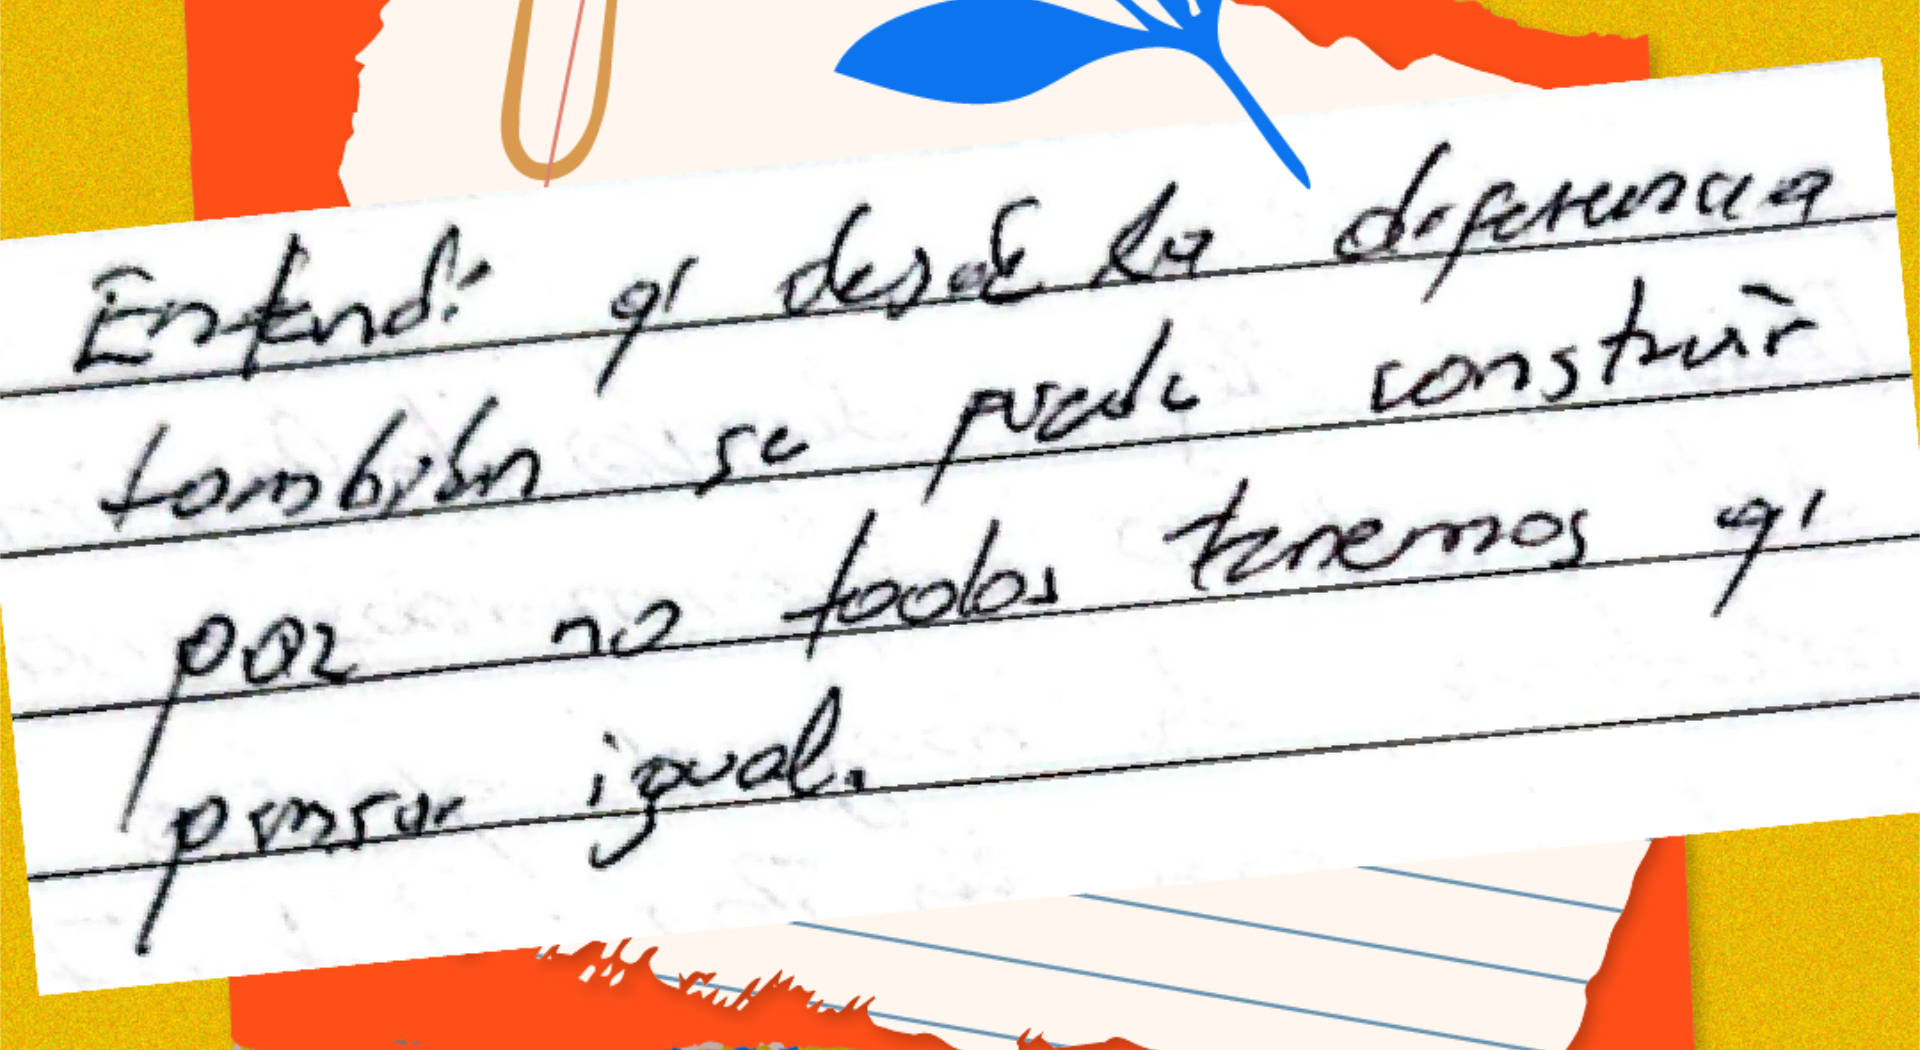 Entendí q' desde la diferencia
también se puede construir
paz no todos tenemos q'
pensar igual.